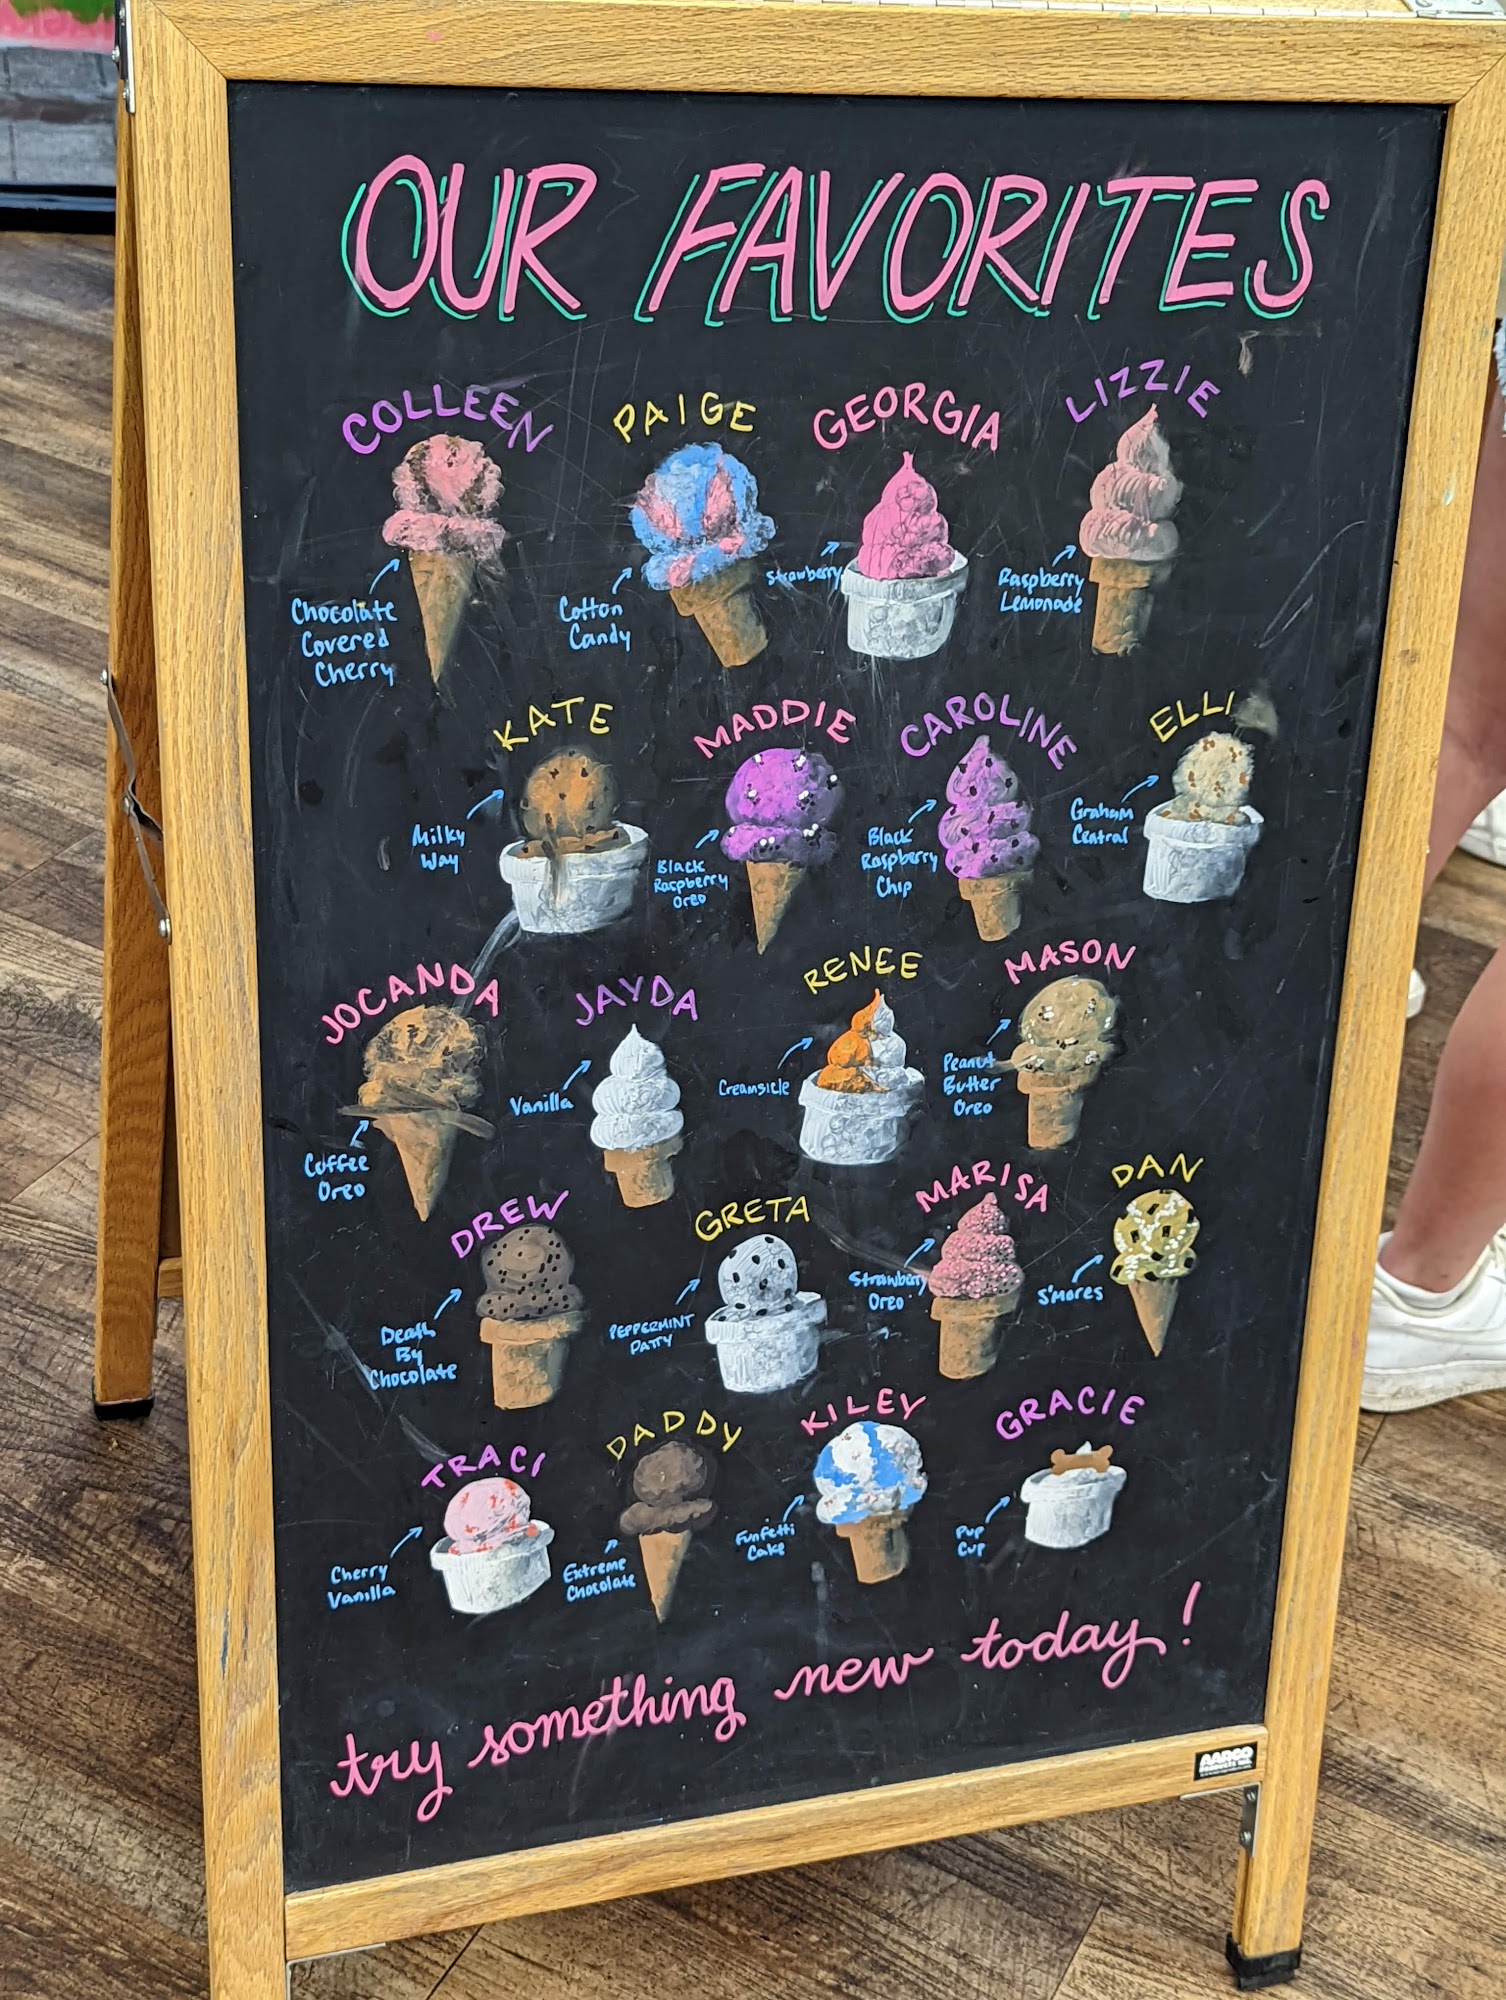 OUR FAVORITES
COLLEEN
Chocolate
Covered
Cherry
PAIGE
Cotton
Candy
GEORGIA
Strawberry
LIZZIE
Raspberry
Lemonade
KATE
Milky
Way
MADDIE
Black
Raspberry
Oreo
CAROLINE
Black
Raspberry
Chip
ELLI
Graham
Central
JOCANDA
Coffee
Oreo
JAYDA
Vanilla
RENEE
Creamsicle
MASON
Peanut
Butter
Oreo
DREW
Death
By
Chocolate
GRETA
PEPPERMINT
PATTY
MARISA
Strawberry
Oreo
DAN
S'mores
TRACI
Cherry
Vanilla
DADDY
Extreme
Chocolate
KILEY
Funfetti
Cake
GRACIE
Pup
Cup
try something new today!
AARCO
PRODUCTS INC.